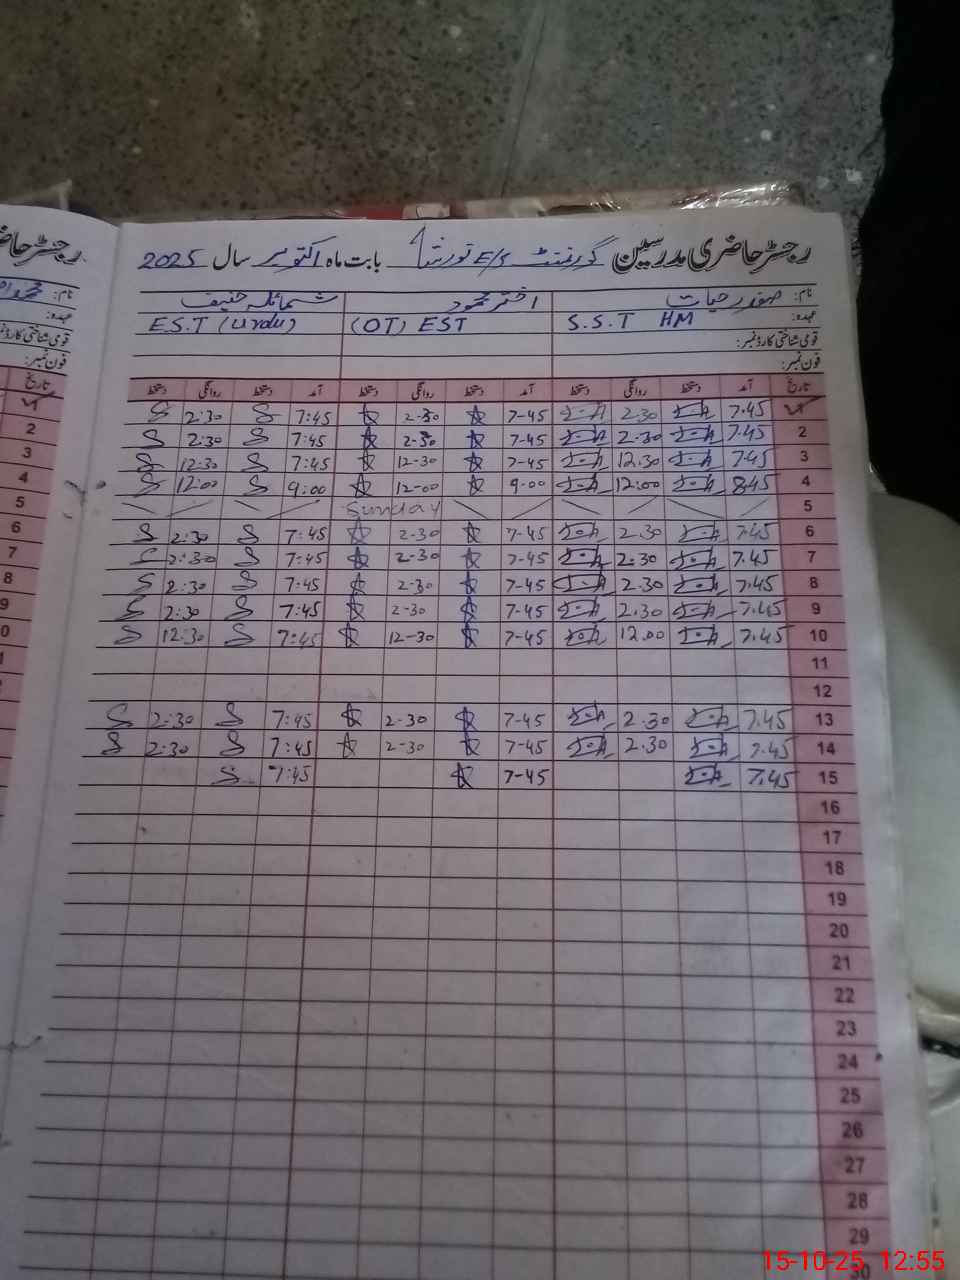 رجسٹر حاضری مدرسین گورنمنٹ E/S بابت ماہ اکتوبر سال 2025
نام: صفدر حیات اختر محمود شمائلہ حنیف
عہدہ: S.S.T HM (OT) EST E.S.T (Urdu)
قومی شناختی کارڈ نمبر:
فون نمبر:
تاریخ آمد دستخط روانگی دستخط آمد دستخط روانگی دستخط آمد دستخط روانگی دستخط
1 7.45 2.30 7-45 2-30 7:45 2:30
2 7.45 2.30 7-45 2-30 7:45 2:30
3 7.45 12.30 7-45 12-30 7:45 12:30
4 8.45 12.00 9-00 12-00 9:00 12:00
5 Sunday
6 7.45 2.30 7-45 2-30 7:45 2:30
7 7.45 2.30 7-45 2-30 7:45 2:30
8 7.45 2.30 7-45 2-30 7:45 2:30
9 7.45 2.30 7-45 2-30 7:45 2:30
10 7.45 12.00 7-45 12-30 7:45 12:30
11
12
13 7.45 2.30 7-45 2-30 7:45 2:30
14 7.45 2.30 7-45 2-30 7:45 2:30
15 7.45 7-45 7:45
16
17
18
19
20
21
22
23
24
25
26
27
28
29
30
رجسٹر حاضری
نام:
عہدہ:
قومی شناختی کارڈ نمبر
فون نمبر:
تاریخ
1
2
3
4
5
6
7
8
9
0
15-10-25 12:55